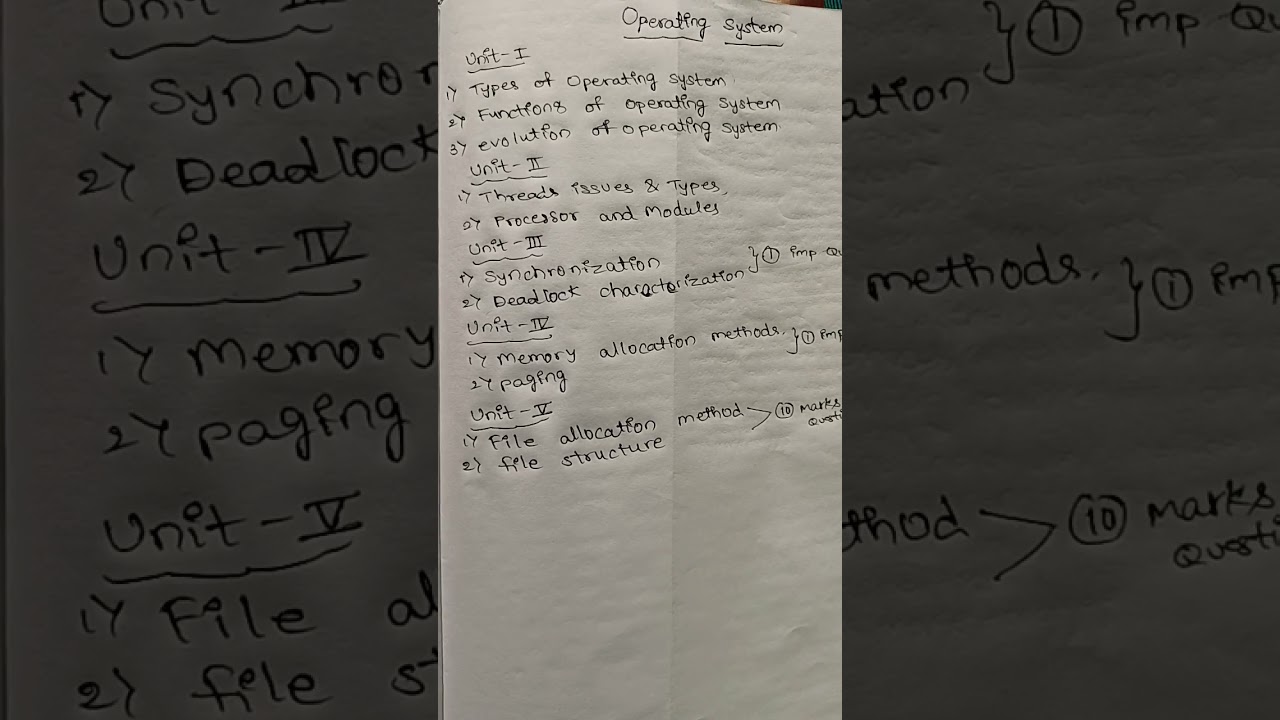 Operating System
Unit-I
1) Types of Operating system
2) Functions of operating System
3) evolution of operating system
Unit-II
1) Threads issues & Types,
2) Processor and Modules
Unit-III
1) Synchronization
2) Deadlock charactorization } ① imp Qu
Unit-IV
1) Memory allocation methods. } ① imp
2) paging
Unit-V
1) File allocation method > ⑩ marks
Questi
2) file structure